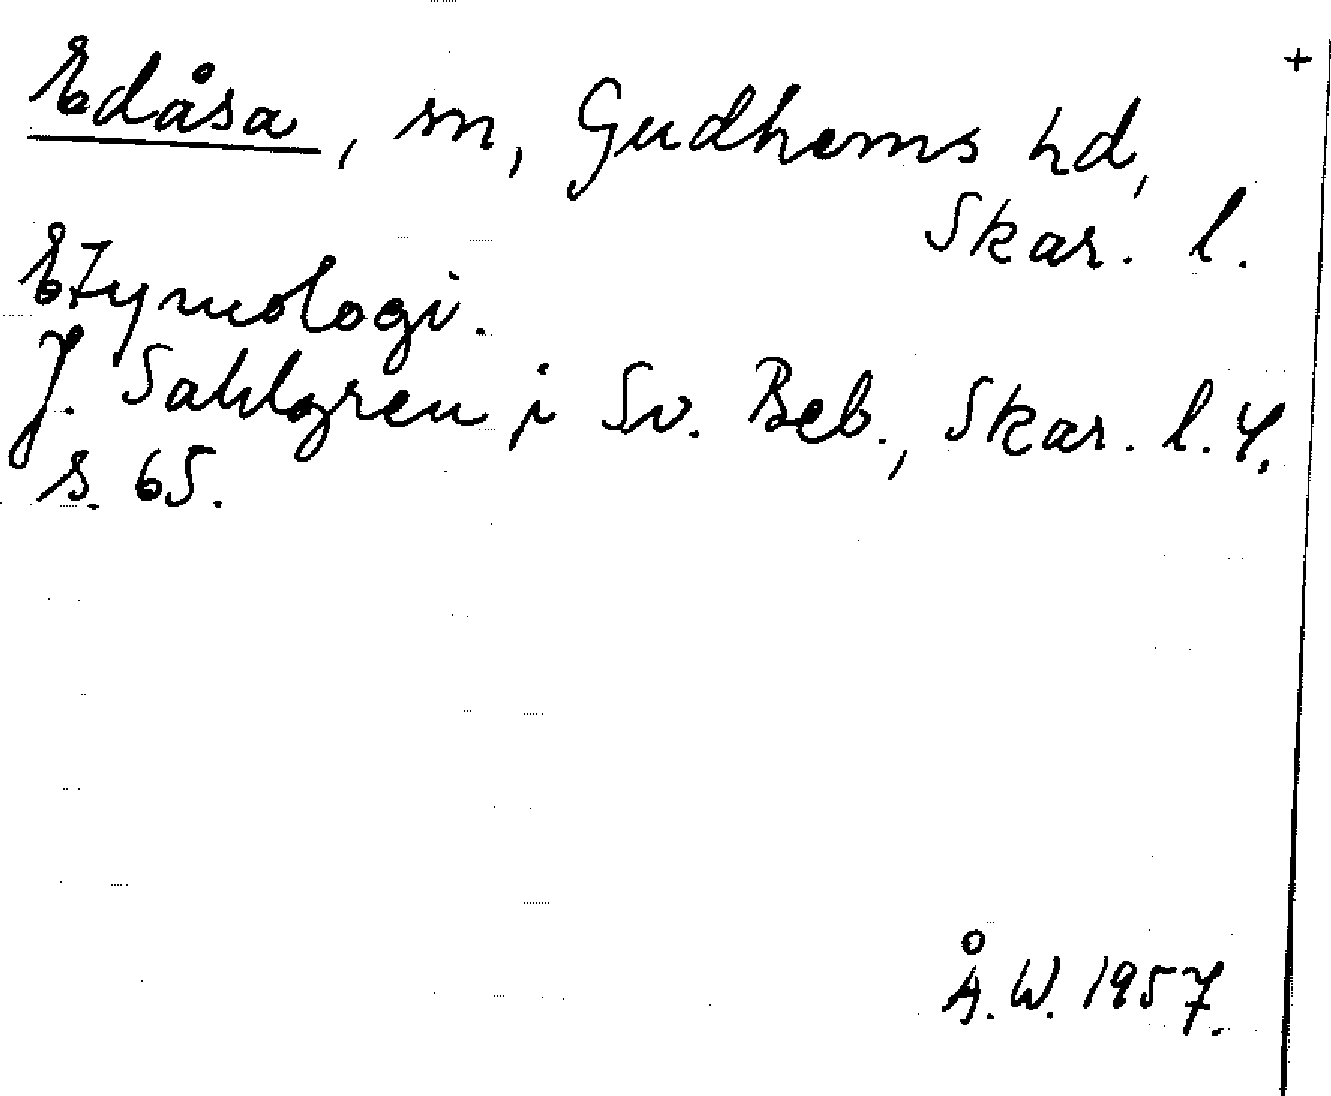 +
Edåsa, sn, Gudhems hd,
Skar. l.
Etymologi.
J. Sahlgren i Sv. Beb., Skar. l. 4,
s. 65.
Å. W. 1957.